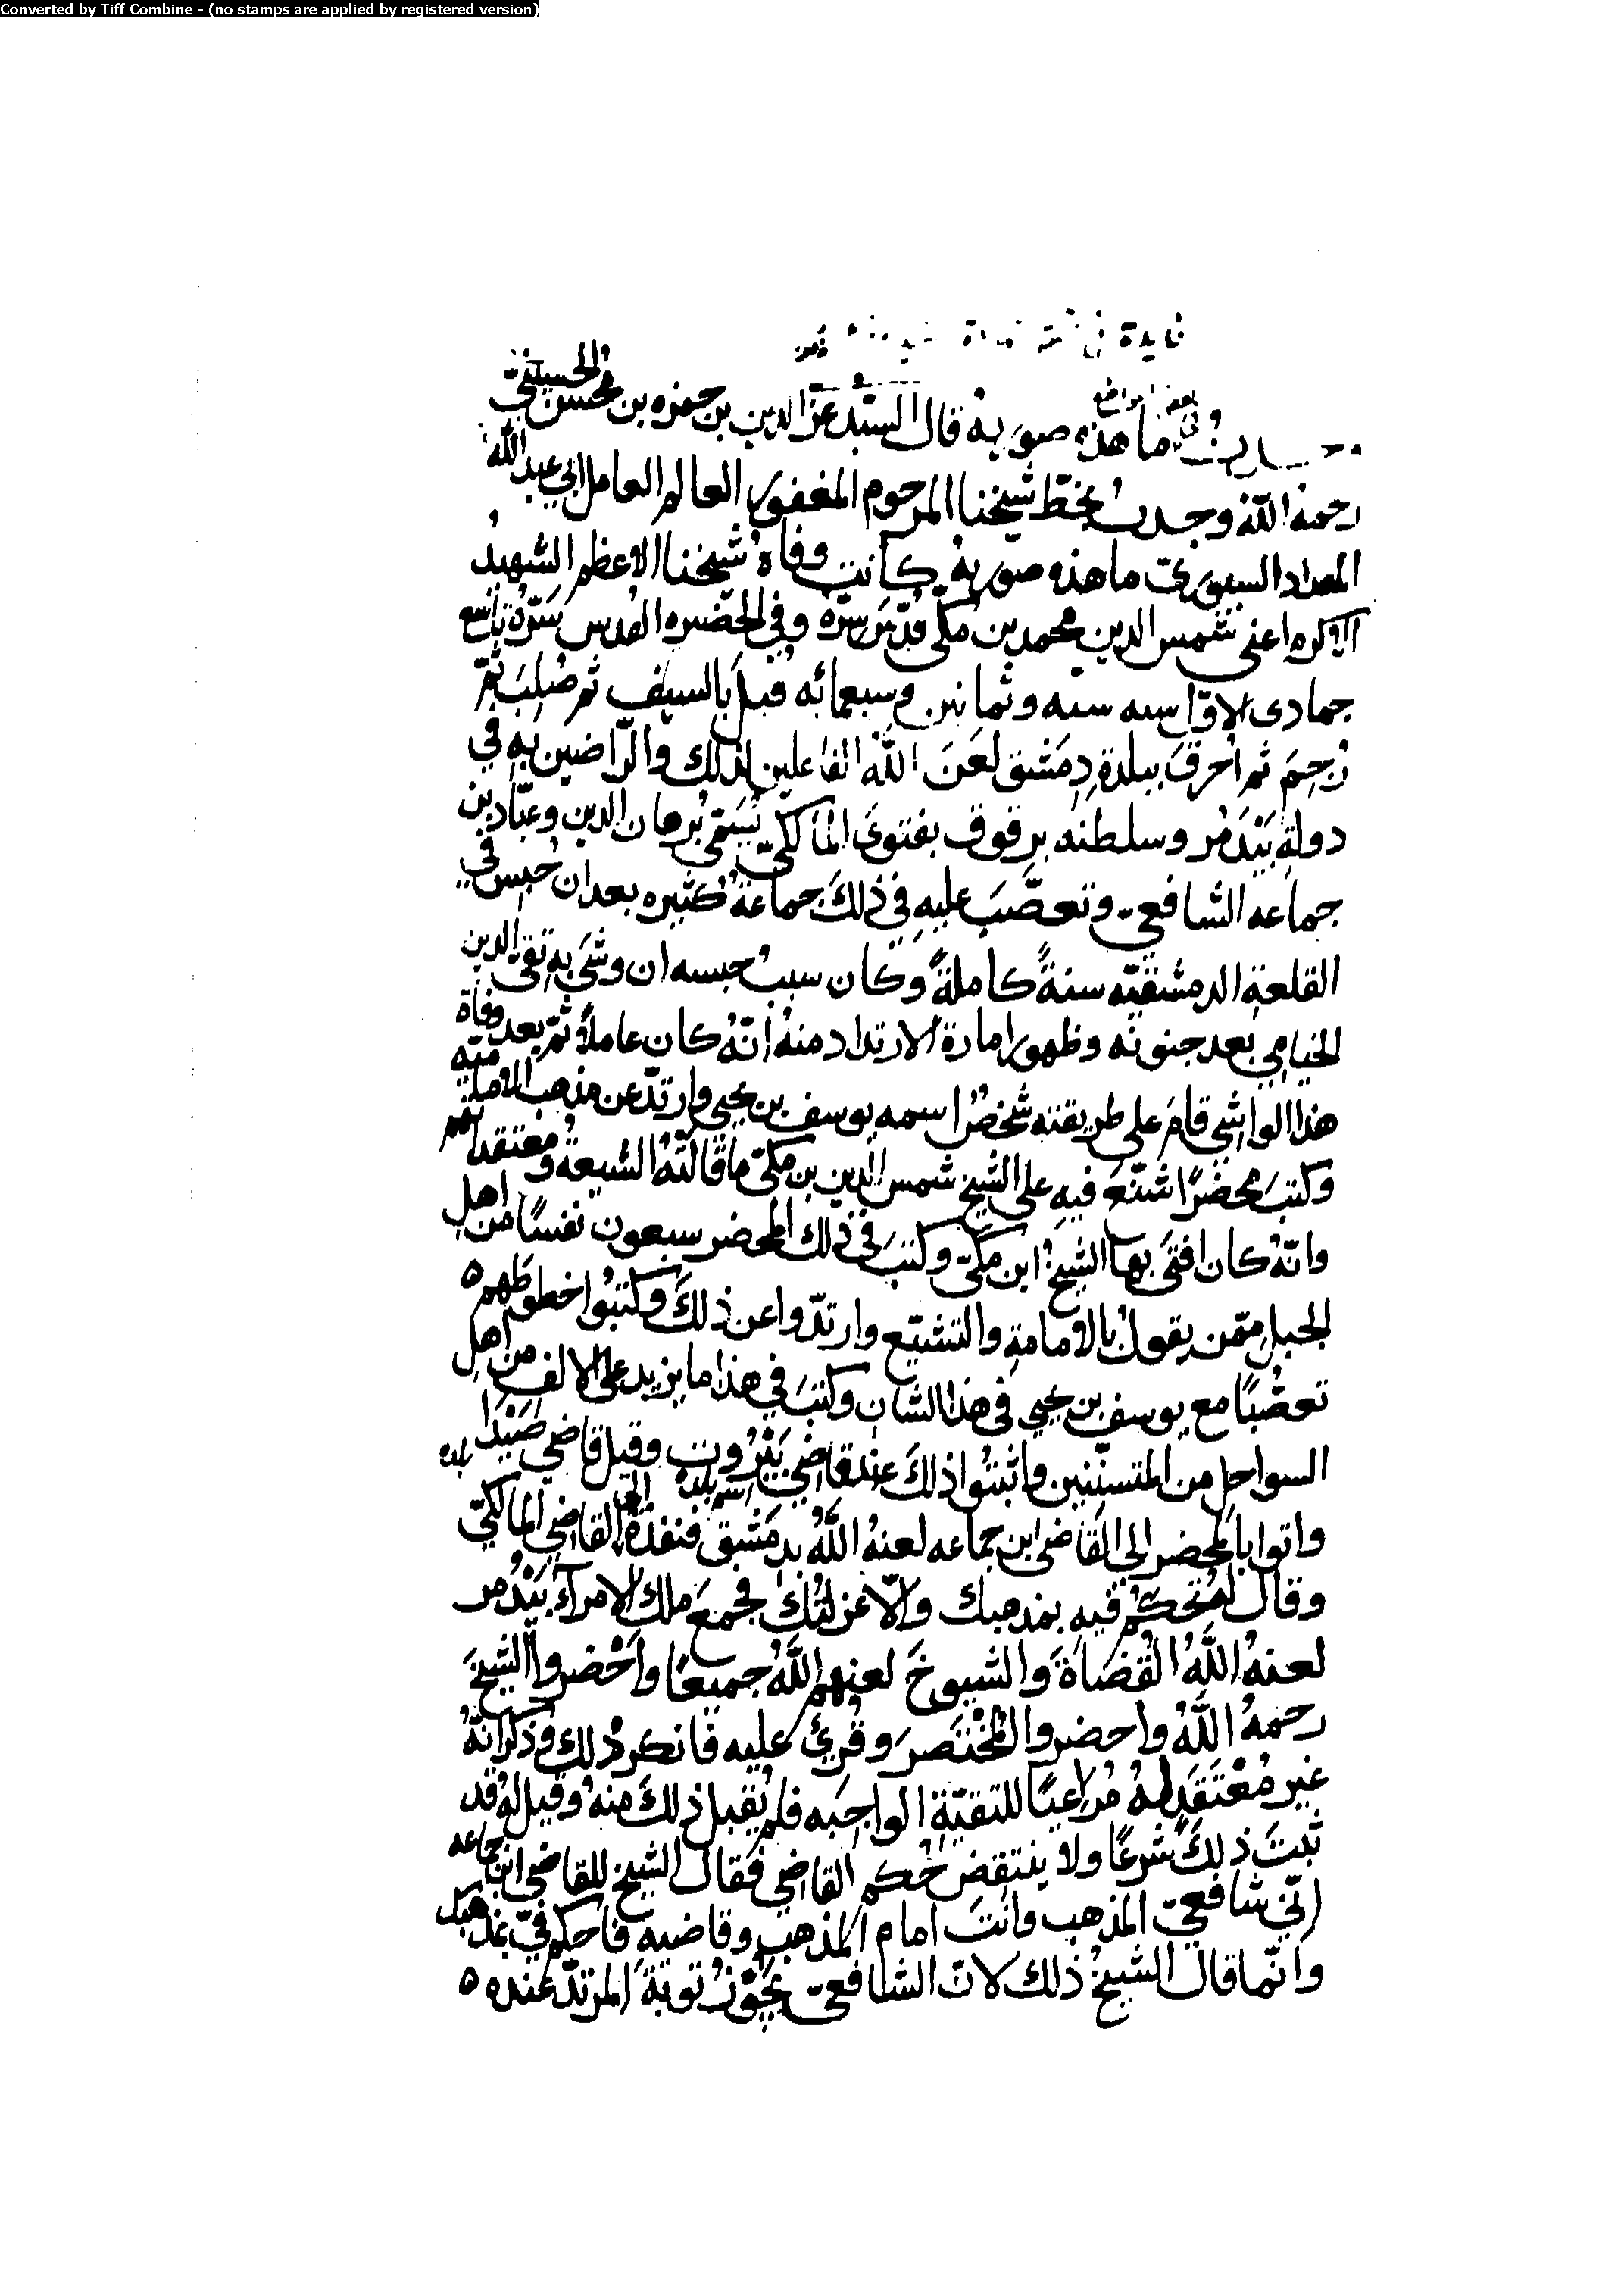 Converted by Tiff Combine - (no stamps are applied by registered version)
فايدة في
بعض المواضع
وجدت في ما هذه صورته قال السيد عز الدين بن حمزه بن محسن الحسيني
رحمه الله وجدت بخط شيخنا المرحوم المغفور العالم العامل ابي عبد الله
المقداد السيوري ما هذه صورته كانت وفاة شيخنا الاعظم الشهيد
الاكرم اعني شمس الدين محمد بن مكي قدس سره وفي الحضيره القدس سره تاسع
جمادى الاول سنه سته وثمانين وسبعمائه قتل بالسيف ثم صلب ثم
رجم ثم احرق ببلدة دمشق لعن الله الفاعلين لذلك والراضين به في
دولة بيدمر وسلطنه برقوق بفتوى المالكي يسمى برهان الدين وعباد بن
جماعه الشافعي وتعصب عليه في ذلك جماعة كثيره بعد ان حبس في
القلعة الدمشقيه سنة كاملة وكان سبب حبسه ان وشي به تقي الدين
الخيامي بعد جنونه وظهور امارة الارتداد منه انه كان عاملا ثم بعد وفاة
هذا الواشي قام على طريقته شخص اسمه يوسف بن يحيى وارتد عن مذهب الاماميه
وكتب محضرا شنع فيه على الشيخ شمس الدين بن مكي ما قالته الشيعة ومعتقداتهم
وانه كان افتى بها الشيخ ابن مكي وكتب في ذلك المحضر سبعون نفسا من اهل
الجبل ممن يقول بالامامة والتشيع وارتدوا عن ذلك وكتبوا خطوطهم ه
تعصبا مع يوسف بن يحيى في هذا الشان وكتب في هذا ما يزيد على الالف من اهل
السواحل من المتسننين واثبتوا ذلك عند قاضي بيروت وقيل قاضي صيدا بلده
اسم بلده
واتوا بالمحضر الى القاضي ابن جماعه لعنه الله بدمشق فنفذه الى القاضي المالكي
وقال له تحكم فيه بمذهبك والا عزلتك فجمع ملك الامراء بيدمر
لعنه الله القضاة والشيوخ لعنهم الله جميعا واحضروا الشيخ
رحمه الله واحضروا المختصر وقرئ عليه فانكر ذلك وذكر انه
غير معتقد له مراعيا للتقية الواجبه فلم يقبل ذلك منه وقيل له قد
ثبت ذلك شرعا ولا ينتقض حكم القاضي فقال الشيخ للقاضي ابن جماعه
اني شافعي المذهب وانت امام المذهب وقاضيه فاحكم في بمذهبك
وانما قال الشيخ ذلك لان الشافعي يجوز توبة المرتد عنده ه